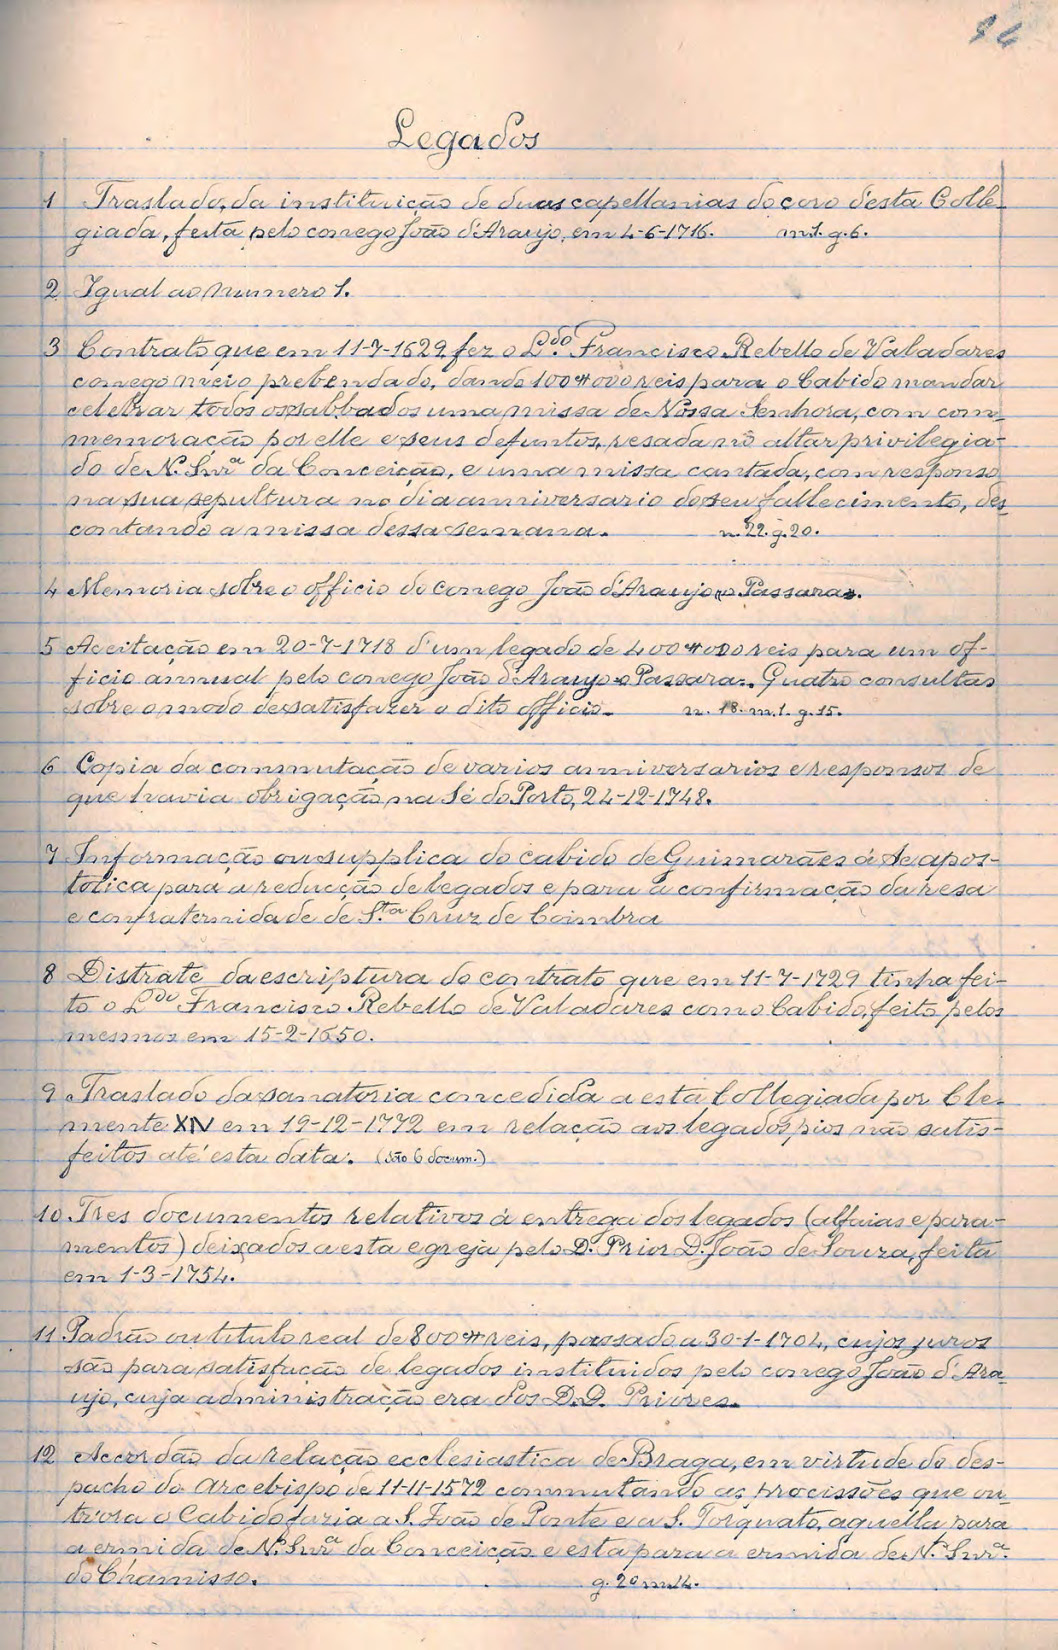 94
Legados
1 Traslado, da instituição de duas capellanias do coro d'esta Colle-
giada, feita pelo conego João d'Araujo, em 4-6-1716. m.1. g.6.
2 Igual ao numero 1.
3 Contrato que em 11-7-1629 fez o L.do Francisco Rebello de Valadares
conego meio prebendado, dando 100#000 reis para o Cabido mandar
celebrar todos os sabbados uma missa de Nossa Senhora, com com-
memoração por elle e seus defuntos, resada no altar privilegia-
do de N. Snr.a da Conceição, e uma missa cantada, com responso
na sua sepultura no dia anniversario do seu fallecimento, des-
contando a missa dessa semana. n.22. g.20.
4 Memoria sobre o officio do conego João d'Araujo e Passara.
5 Aceitação em 20-7-1718 d'um legado de 400#000 reis para um of-
ficio annual pelo conego João d'Araujo e Passara. Quatro consultas
sobre o modo de satisfazer o dito officio. n. 18. m.1. g.15.
6 Copia da commutação de varios anniversarios e responsos de
que havia obrigação na Sé do Porto, 24-12-1748.
7 Informação ou supplica do cabido de Guimarães á Se apos-
tolica para a reducção de legados e para a confirmação da resa
e confraternidade de S.ta Cruz de Coimbra
8 Distrate da escriptura do contrato que em 11-7-1729 tinha fei-
to o L.do Francisco Rebello de Valadares com o Cabido, feito pelos
mesmos em 15-2-1650.
9 Traslado da sanatoria concedida a esta Collegiada por Cle-
mente XIV em 19-12-1772 em relação aos legados pios não satis-
feitos até esta data. (São 6 docum.)
10 Tres documentos relativos á entrega dos legados (alfaias e para-
mentos) deixados a esta egreja pelo D. Prior D. João de Souza, feita
em 1-3-1754.
11 Padrão ou titulo real de 800# reis, passado a 30-1-1704, cujos juros
são para satisfação de legados instituidos pelo conego João d'Ara-
ujo, cuja administração era dos D.D. Priores.
12 Accordão da relação ecclesiastica de Braga, em virtude do des-
pacho do arcebispo de 11-11-1572 commutando as procissões que ou-
trora o Cabido fazia a S. João de Ponte e a S. Torquato, aquella para
a ermida de N. Snr.a da Conceição e esta para a ermida de N. Snr.a
do Chamisso. g. 20 m.14.